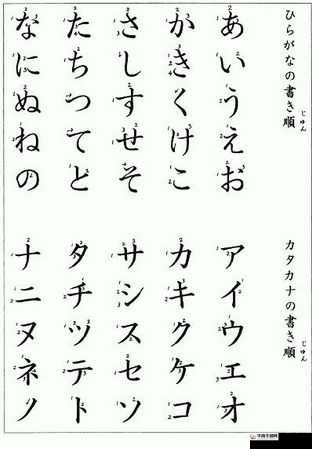 ひらがなの書き順
じゅん
あいうえお
かきくけこ
さしすせそ
たちつてと
なにぬねの
カタカナの書き順
じゅん
アイウエオ
カキクケコ
サシスセソ
タチツテト
ナニヌネノ